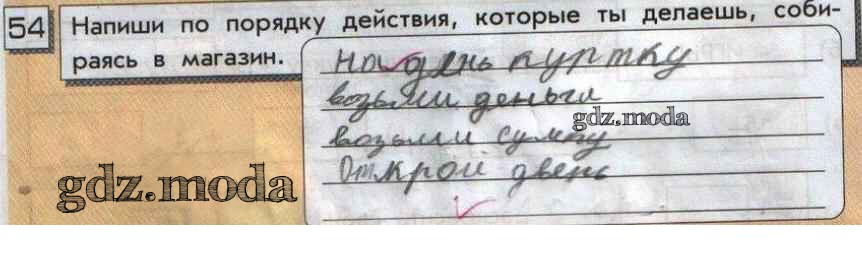 54 Напиши по порядку действия, которые ты делаешь, соби-
раясь в магазин.
На день куртку
возьми деньги
gdz.moda
возьми сумку
Открой дверь
gdz.moda